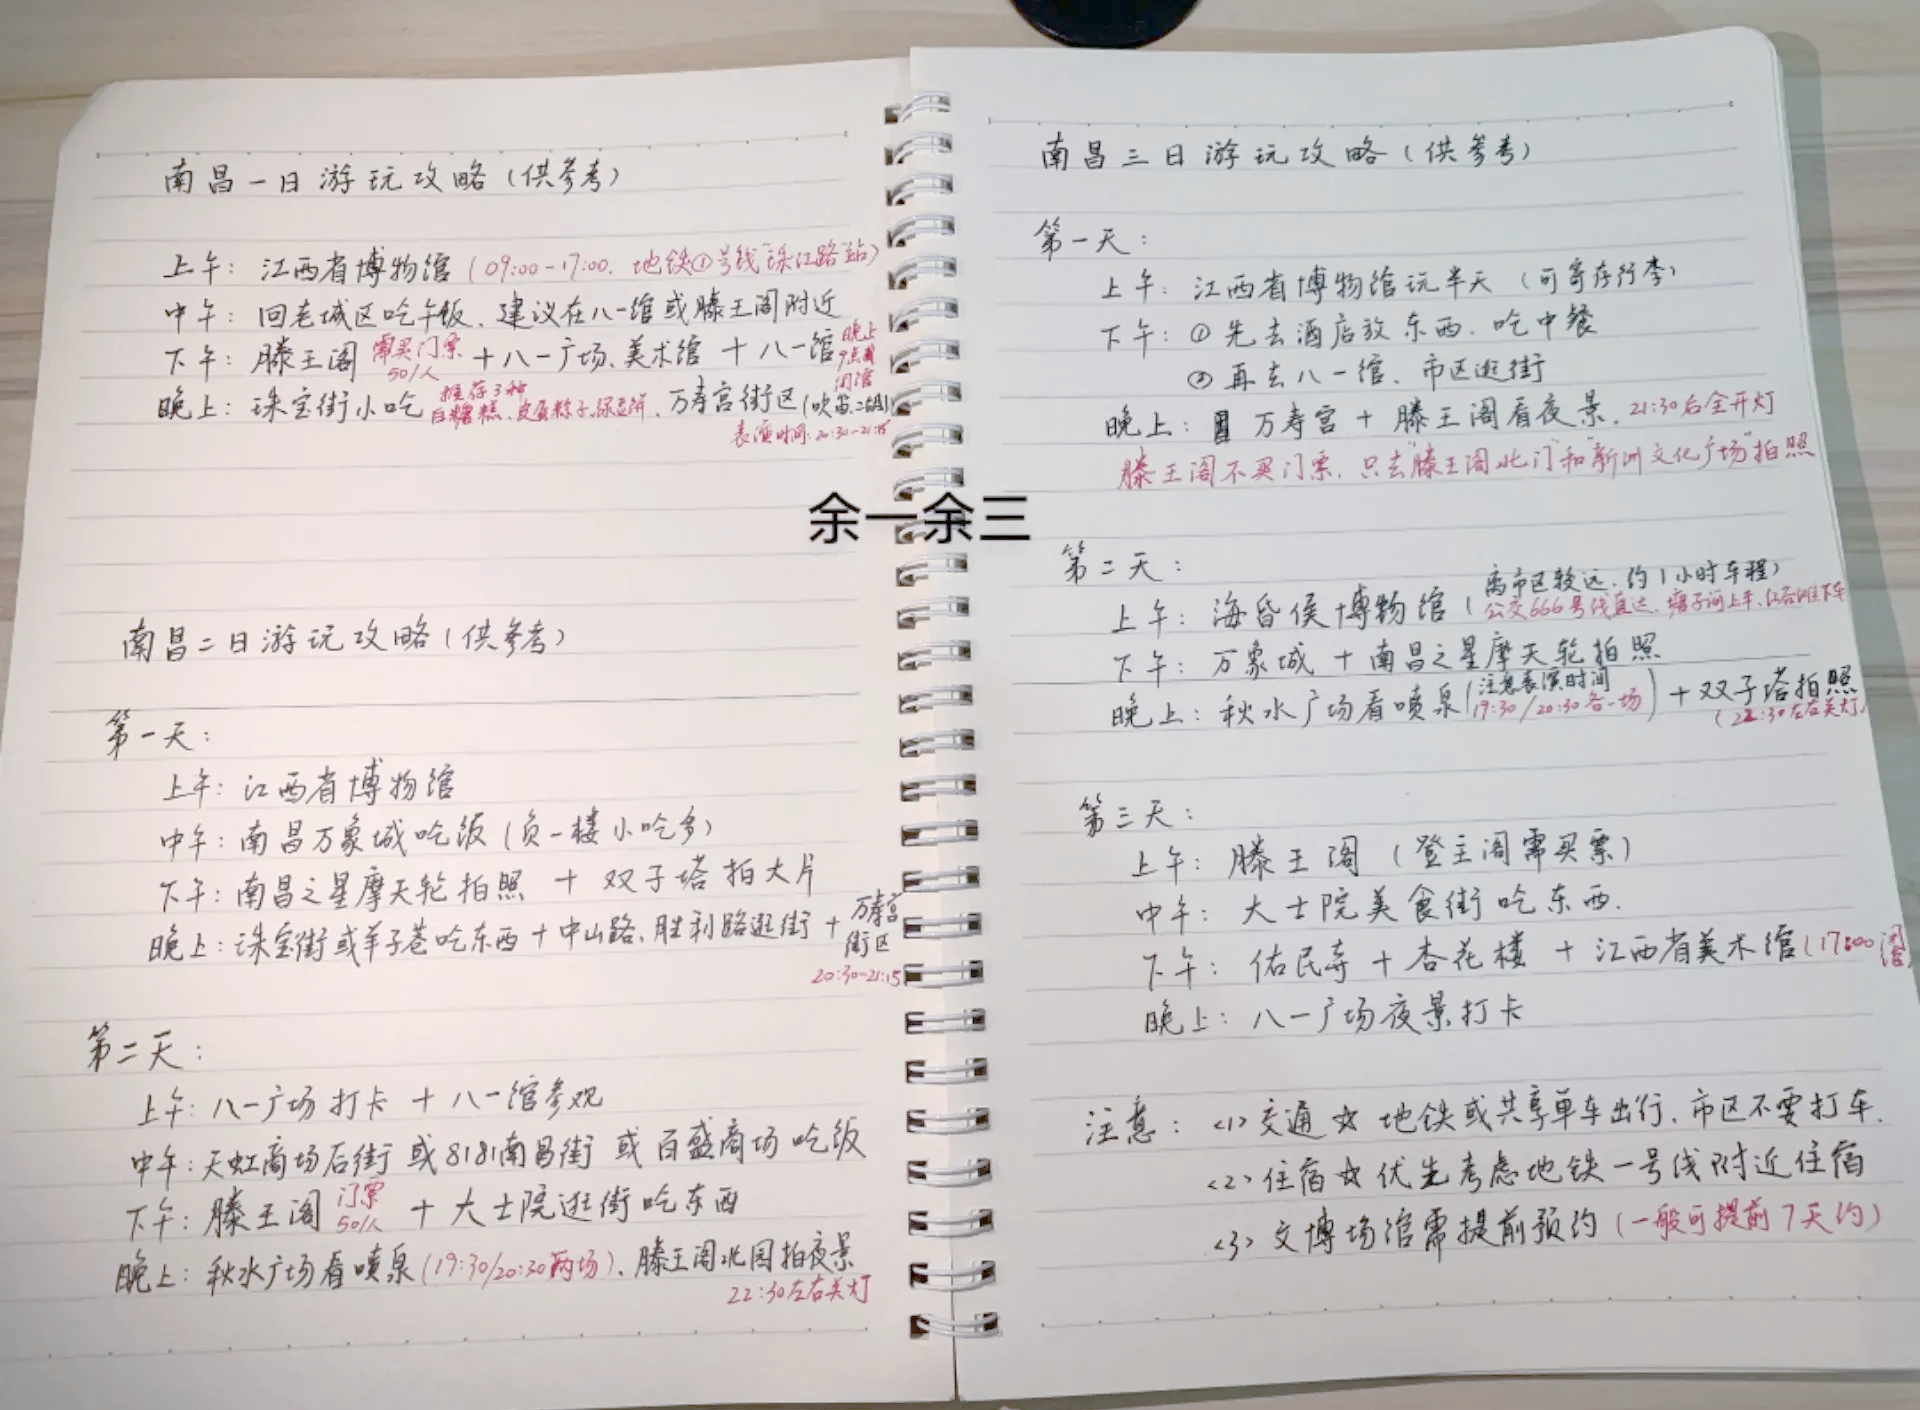 南昌一日游玩攻略(供参考)
上午: 江西省博物馆(09:00-17:00. 地铁①号线"珠江路"站)
中午: 回老城区吃午饭、建议在八一馆或滕王阁附近
下午: 滕王阁 需买门票 50/人 + 八一广场、美术馆 + 八一馆 晚上9点 闭馆
晚上: 珠宝街小吃 推荐3种 白糖糕、皮蛋粽子、绿豆饼、万寿宫街区(吹笛、二胡)
表演时间: 20:30-21:15
南昌二日游玩攻略(供参考)
第一天:
上午: 江西省博物馆
中午: 南昌万象城吃饭(负一楼小吃多)
下午: 南昌之星摩天轮拍照 + 双子塔拍大片
晚上: 珠宝街或羊子巷吃东西+中山路、胜利路逛街+ 万寿宫街区
20:30-21:15
第二天:
上午: 八一广场打卡 + 八一馆参观
中午: 天虹商场后街 或8181南昌街 或 百盛商场 吃饭
下午: 滕王阁 门票 50/人 + 大士院逛街吃东西
晚上: 秋水广场看喷泉(19:30/20:30两场)、滕王阁北园拍夜景
22:30左右关灯
南昌三日游玩攻略(供参考)
第一天:
上午: 江西省博物馆玩半天 (可寄存行李)
下午: ① 先去酒店放东西、吃中餐
② 再去八一馆、市区逛街
晚上: 万寿宫 + 滕王阁看夜景、21:30后全开灯
滕王阁不买门票、只去"滕王阁北门"和"新洲文化广场"拍照
第二天:
上午: 海昏侯博物馆(离市区较远、约1小时车程)
公交666号线直达、塘子河上车、红谷滩下车
下午: 万象城 + 南昌之星摩天轮拍照
晚上: 秋水广场看喷泉(注意表演时间 19:30/20:30各一场)+ 双子塔拍照
(22:30左右关灯)
第三天:
上午: 滕王阁 (登主阁需买票)
中午: 大士院美食街吃东西.
下午: 佑民寺 + 杏花楼 + 江西省美术馆(17:00闭馆)
晚上: 八一广场夜景打卡
注意: <1> 交通☆ 地铁或共享单车出行、市区不要打车.
<2> 住宿☆ 优先考虑地铁一号线附近住宿
<3> 文博场馆需提前预约(一般可提前7天约)
余一余三